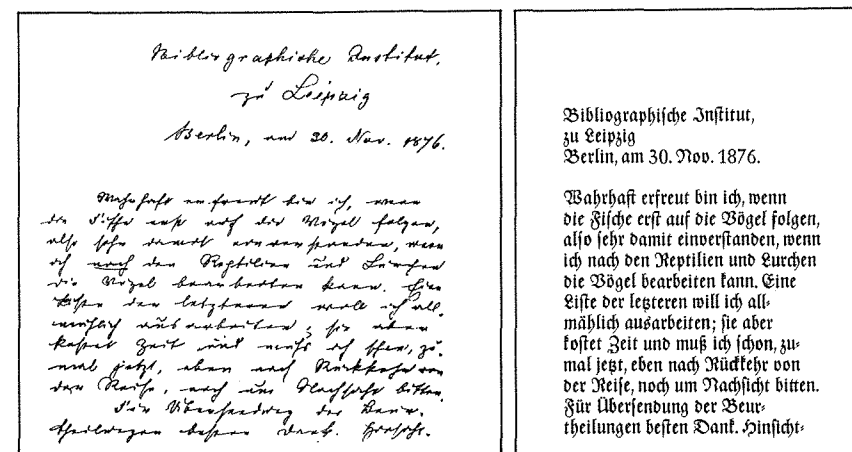 Bibliographische Institut,
zu Leipzig
Berlin, am 30. Nov. 1876.
Wahrhaft erfreut bin ich, wenn
die Fische erst auf die Vögel folgen,
also sehr damit einverstanden, wenn
ich nach den Reptilien und Lurchen
die Vögel bearbeiten kann. Eine
Liste der letzteren will ich all-
mählich ausarbeiten; sie aber
kostet Zeit und muß ich schon, zu-
mal jetzt, eben nach Rückkehr von
der Reise, noch um Nachsicht bitten.
Für Übersendung der Beur-
theilungen besten Dank. Hinsicht-
Bibliographische Institut,
zu Leipzig
Berlin, am 30. Nov. 1876.
Wahrhaft erfreut bin ich, wenn
die Fische erst auf die Vögel folgen,
also sehr damit einverstanden, wenn
ich nach den Reptilien und Lurchen
die Vögel bearbeiten kann. Eine
Liste der letzteren will ich all-
mählich ausarbeiten; sie aber
kostet Zeit und muß ich schon, zu-
mal jetzt, eben nach Rückkehr von
der Reise, noch um Nachsicht bitten.
Für Übersendung der Beur-
theilungen besten Dank. Hinsicht-